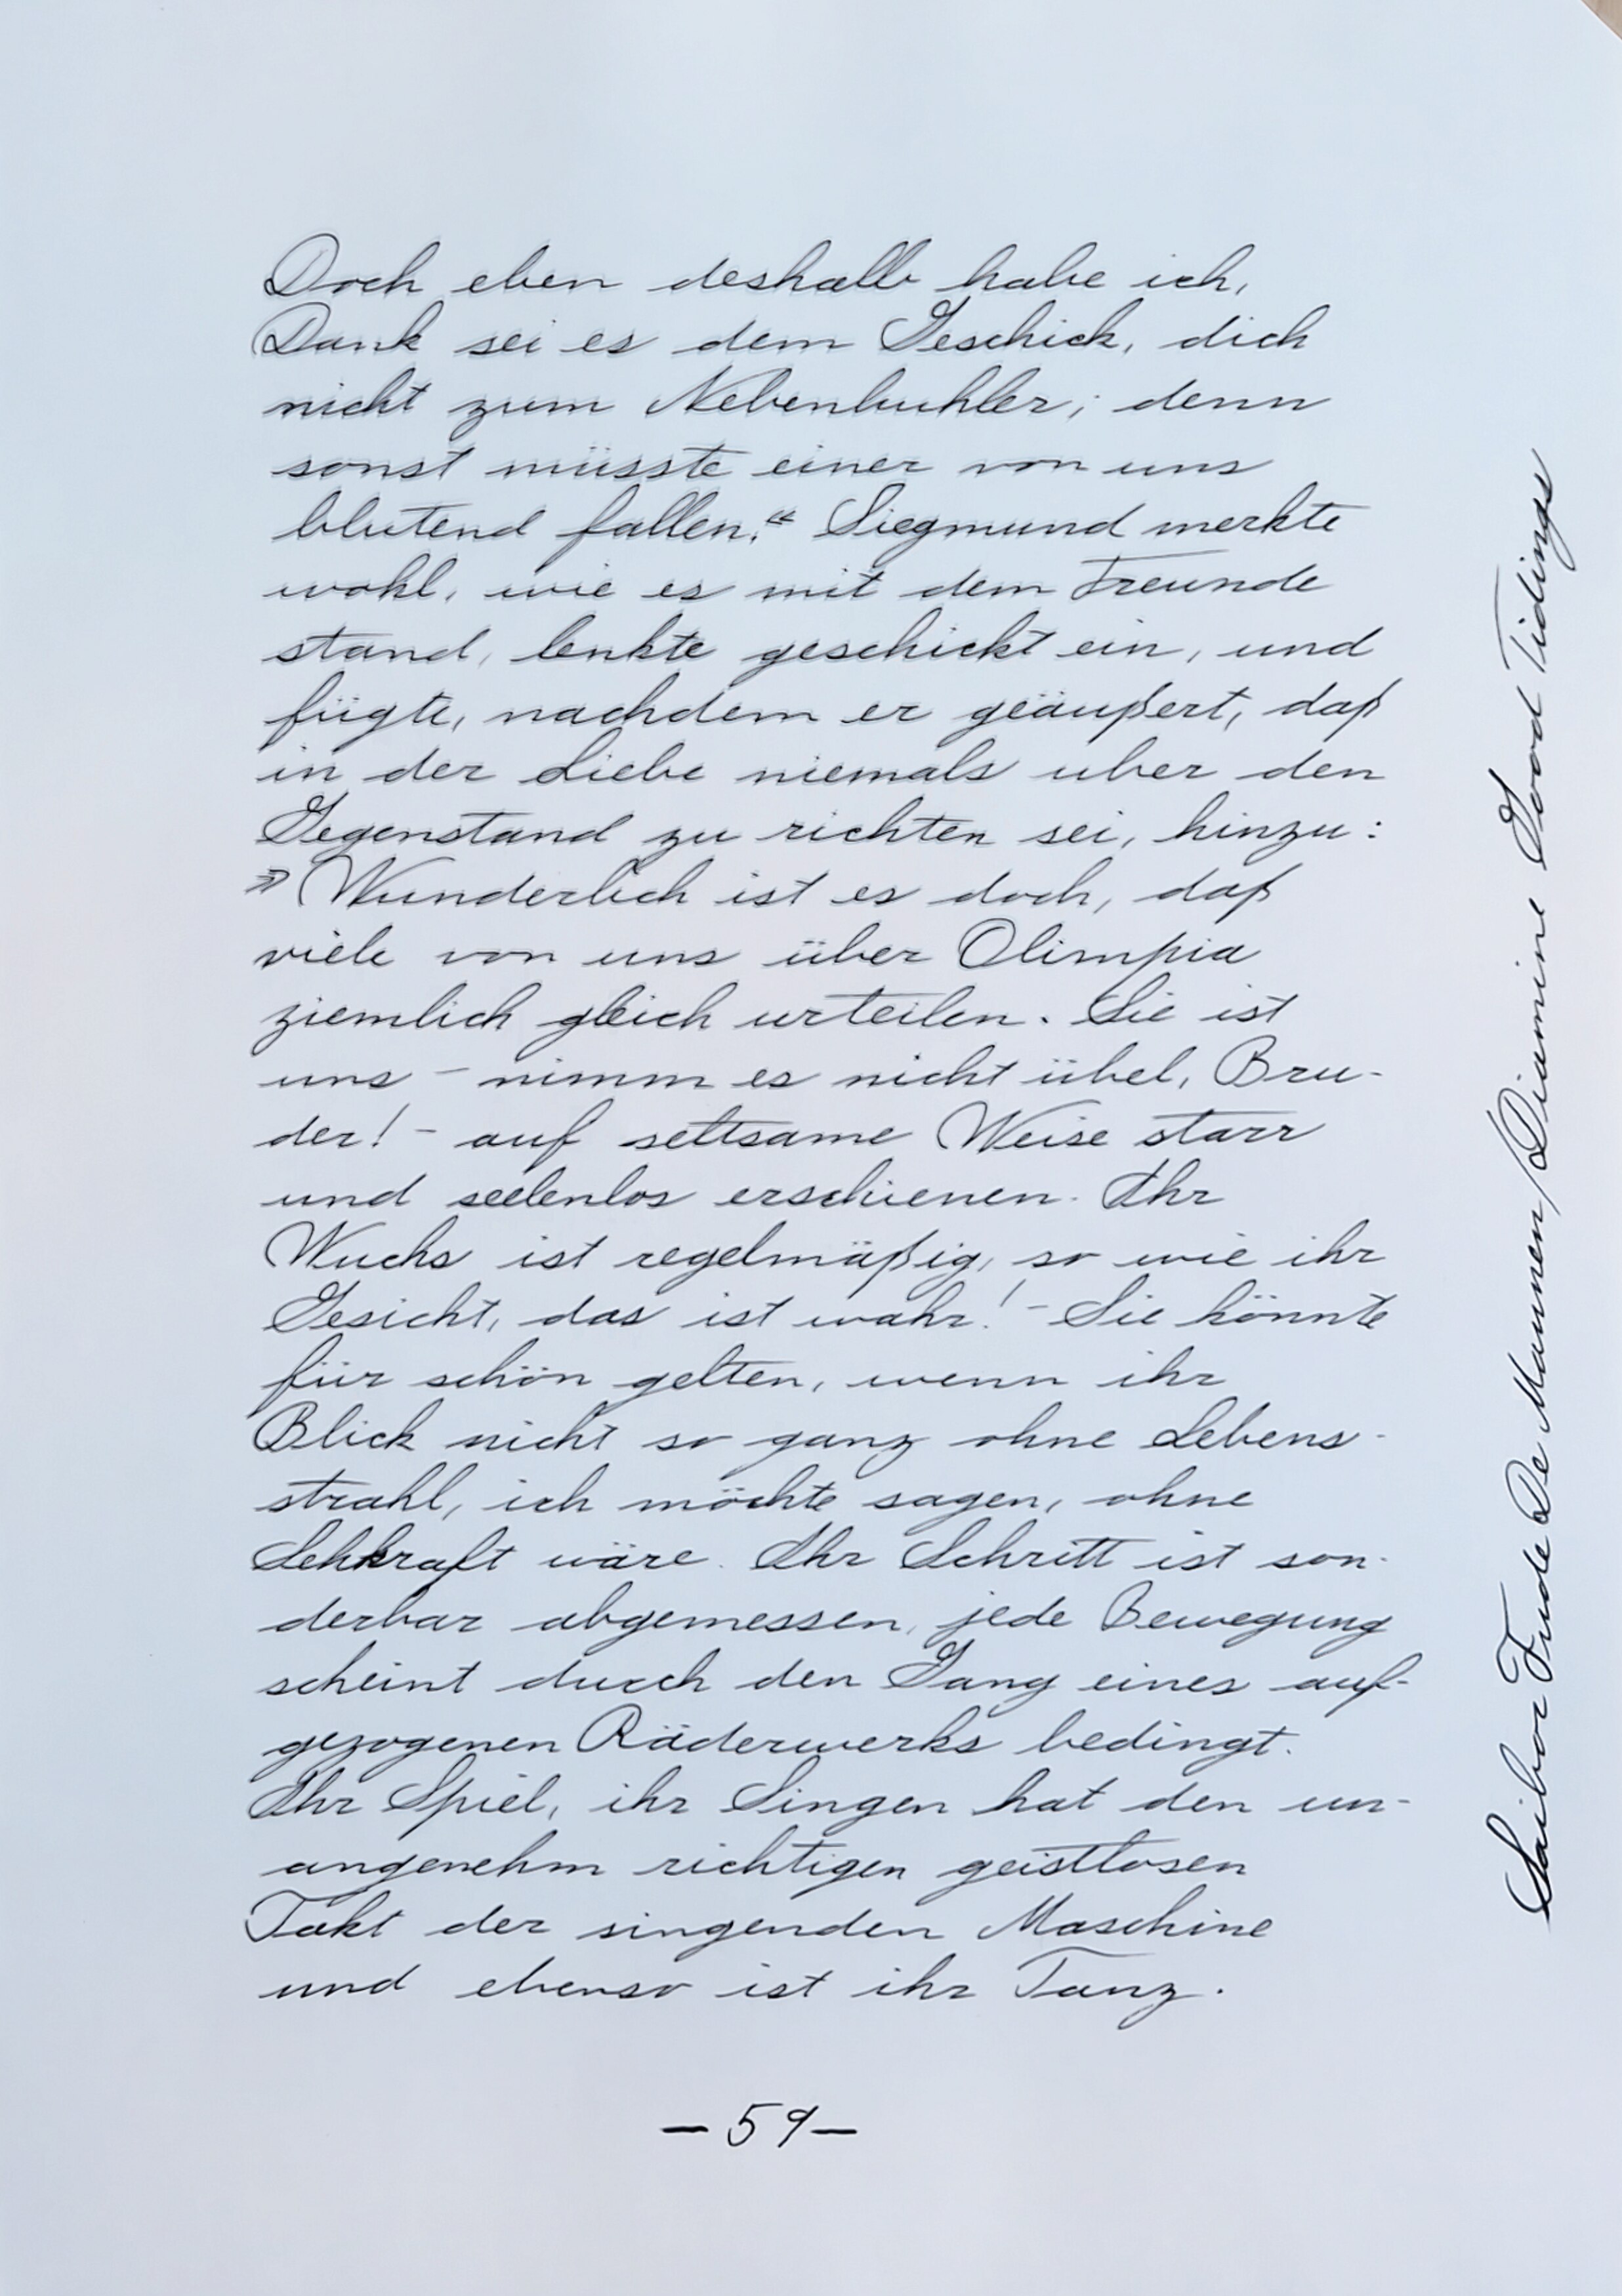 Doch eben deshalb habe ich,
Dank sei es dem Geschick, dich
nicht zum Nebenbuhler; denn
sonst müsste einer von uns
blutend fallen.“ Siegmund merkte
wohl, wie es mit dem Freunde
stand, lenkte geschickt ein, und
fügte, nachdem er geäußert, daß
in der Liebe niemals uber den
Gegenstand zu richten sei, hinzu:
»Wunderlich ist es doch, daß
viele von uns über Olimpia
ziemlich gleich urteilen. Sie ist
uns – nimm es nicht übel, Bru-
der! – auf seltsame Weise starr
und seelenlos erschienen. Ihr
Wuchs ist regelmäßig, so wie ihr
Gesicht, das ist wahr! – Sie könnte
für schön gelten, wenn ihr
Blick nicht so ganz ohne Lebens-
strahl, ich möchte sagen, ohne
Sehkraft wäre. Ihr Schritt ist son-
derbar abgemessen, jede Bewegung
scheint durch den Gang eines auf-
gezogenen Räderwerks bedingt.
Ihr Spiel, ihr Singen hat den un-
angenehm richtigen geistlosen
Takt der singenden Maschine
und ebenso ist ihr Tanz.
– 59 –
De Mannen/Diamine Good Tidings